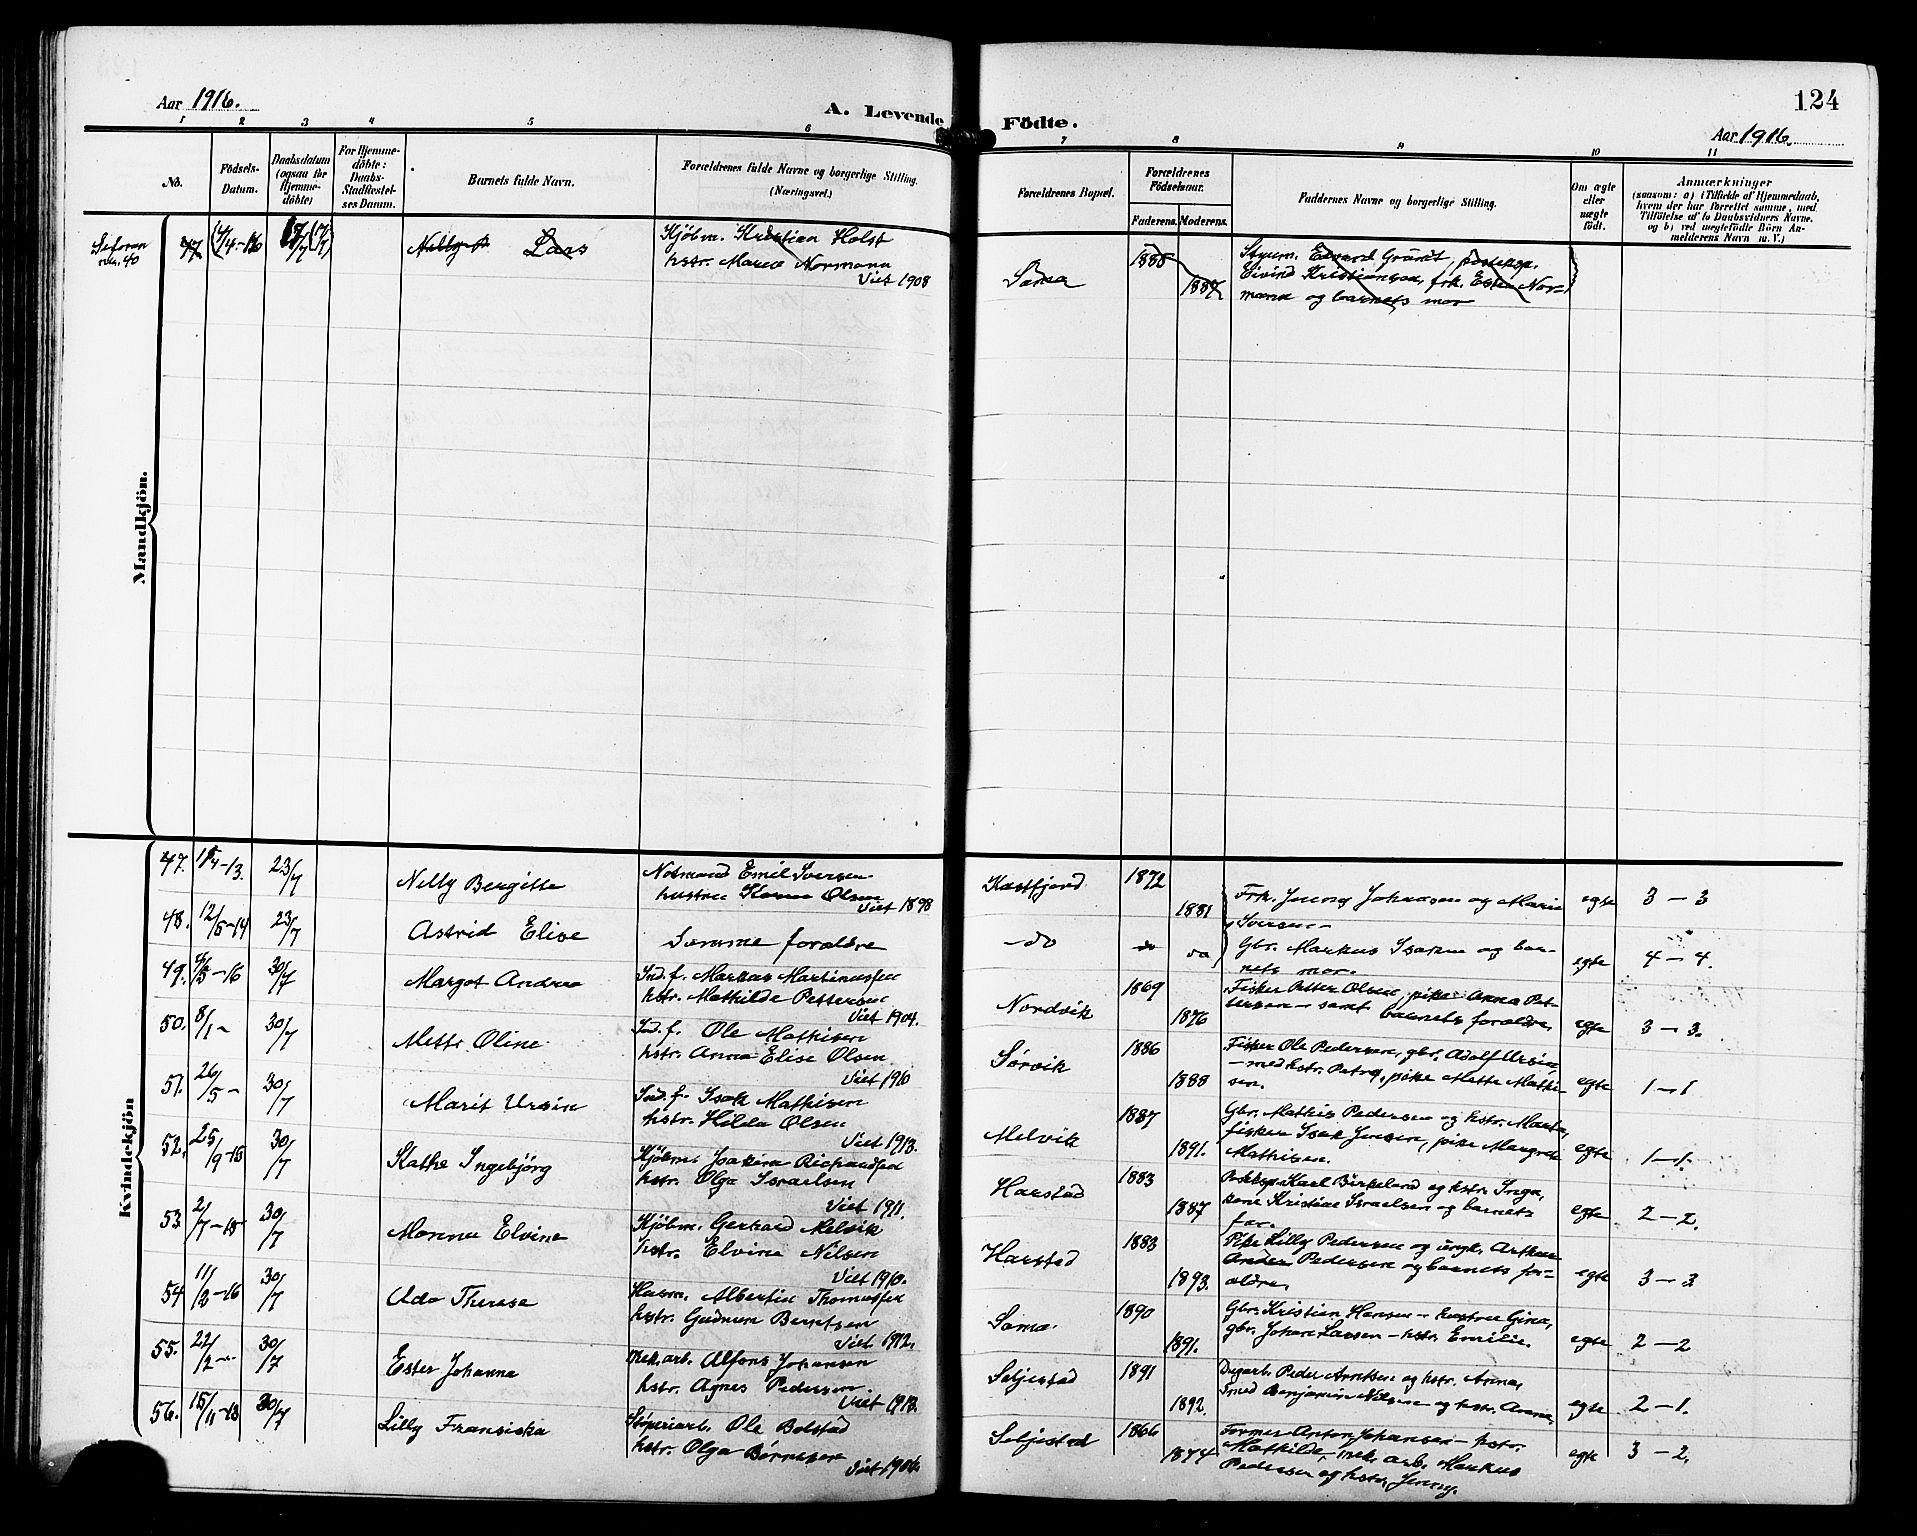 Aar 1916.
A. Levende Födte.
124
Aar 1916.
1 2 3 4 5 6 7 8 9 10 11
No.
Födsels-
Datum.
Daabsdatum
(ogsaa for
Hjemme-
döbte)
For Hjemme-
döbte:
Daabs-
Stadfæstel-
ses Datum.
Barnets fulde Navn.
Forældrenes fulde Navne og borgerlige Stilling.
(Næringsvei.)
Forældrenes Bopæl.
Forældrenes
Födselsaar.
Faderens. Moderens.
Faddernes Navne og borgerlige Stilling.
Om ægte
eller
uægte
födt.
Anmærkninger
(saasom: a) i Tilfælde af Hjemmedaab,
hvem der har forrettet samme, med
Tilföielse af to Daabsvidners Navne.
og b) ved uægtefödte Börn An-
melderens Navn o. V.)
Mandkjön.
Se foran
nr. 40
47
Nelly B Laas
Kjøbm. Kristian Holst
hstr. Marie Normann
Viet 1908
Sama
1885
1887
Styrm. Edvard Gründt, postexp.
Eivind Kristiansen, frk. Ester Nor-
mann og barnets mor
Kvindekjön
47. 23/7 Nelly Bergitte
Notmand Emil Iversen
hustru Olsen
Viet 1898
Kastfjord 1872 1881
Frk. Jenny Johansen og Marie
Iversen-
egte 3-3
48. 12/5-14 23/7 Astrid Elise
Samme forældre
-do do do
Gbr. Markus Isaksen og bar-
nets mor.
egte 4-4.
49. 30/7 Margot Andrea
Ind.f. Markus Martinussen
hstr. Mathilde Pettersen
Viet 1904.
Nordvik 1869 1876
Fisker Petter Olsen, pike Anna Pet-
tersen - samt barnets forældre.
egte 3-3.
50. 8/1- 30/7 Mette Oline
Ind.f. Ole Mathisen
hstr. Anna Elise Olsen
Viet 1910
Sørvik 1886 1888
Fisker Ole Pedersen, gbr. Adolf Ursin
-med hstr. Petra, pike Mette Mathi-
sen.
egte 1-1
51. 26/5- 30/7 Marit Ursin
Ind.f. Isak Mathisen
hstr. Hilda Olsen
Viet 1913.
Melvik 1887 1891.
Gbr. Mathis Pedersen og hstr. Marta,
fisker Isak Jensen, pike Margrete
Mathisen.
egte 1-1.
52. 25/9-15 30/7 Kathe Ingebjörg
Kjöbm. Joakim Richardsen
hstr. Olga Israelsen
Viet 1911.
Harstad 1883 1887
Postexp. Karl Birkeland og hstr. Inga,
Kristine Israelsen og barnets
far.
egte 2-2.
53. 2/7-15 30/7 Monna Elvine
Kjöbm. Gerhard Melvik
hstr. Elvine Nilsen
Viet 1910.
Harstad 1883 1893.
Pike Lilly Pedersen og ungk. Arthur
Pedersen og barnets for-
ældre.
egte 3-3
54 11/2-16 30/7 Ada Therese
Husm. Albertin Thomassen
hstr. Gudrun Berntsen
Viet 1912.
Sama 1890 1891.
Gbr. Kristian Hansen - hustru Gina,
gbr. Johan Larsen - hstr. Emilie.
egte 2-2
55. 22/2- 30/7 Ester Johanna
Mek.arb. Alfons Johansen
hstr. Agnes Pedersen.
Viet 1913.
Seljestad 1891 1892.
Peder Arntsen og hstr. Anna,
smed Benjamin Nilsen og hstr. Anna
egte 2-1.
56. 15/11-13 30/7 Lilly Fransiska
Støperiarb. Ole Bolstad
hstr. Olga Börnesen
Viet 1906.
Seljestad 1866 1874
Former Anton Johansen - hstr.
Mathilde, mek. arb. Markus
Pedersen og hstr. Jenny.
egte 3-2.